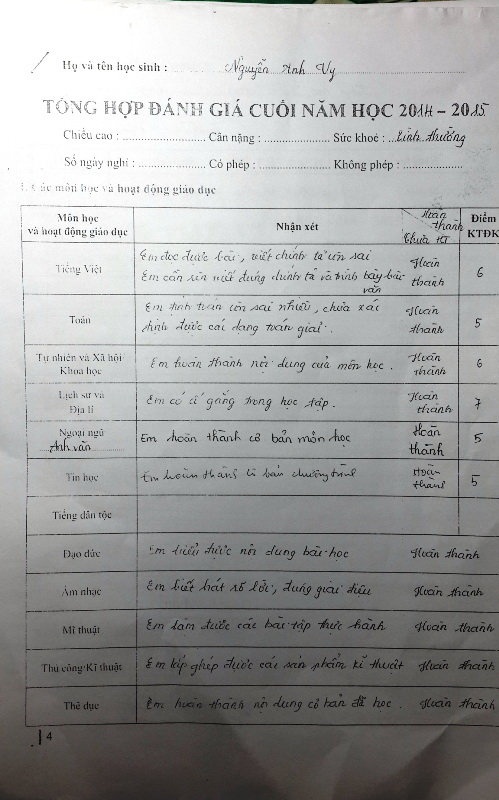 Họ và tên học sinh : Nguyễn Anh Vy
TỔNG HỢP ĐÁNH GIÁ CUỐI NĂM HỌC 2014 – 2015
Chiều cao : .................... Cân nặng : .................... Sức khoẻ : Bình thường
Số ngày nghỉ : .................... Có phép : .................... Không phép : ....................
1. Các môn học và hoạt động giáo dục
Môn học và hoạt động giáo dục
Nhận xét
Hoàn thành
Chưa HT
Điểm KTĐK
Tiếng Việt
Em đọc được bài, viết chính tả còn sai
Em cần rèn viết đúng chính tả và trình bày bài văn
Hoàn thành
6
Toán
Em tính toán còn sai nhiều, chưa xác
định được các dạng toán giải.
Hoàn thành
5
Tự nhiên và Xã hội
Khoa học
Em hoàn thành nội dung của môn học.
Hoàn thành
6
Lịch sử và
Địa lí
Em có cố gắng trong học tập.
Hoàn thành
7
Ngoại ngữ
Anh văn
Em hoàn thành cơ bản môn học
Hoàn thành
5
Tin học
Em hoàn thành cơ bản chương trình
Hoàn thành
5
Tiếng dân tộc
Đạo đức
Em hiểu được nội dung bài học
Hoàn thành
Âm nhạc
Em biết hát rõ lời, đúng giai điệu
Hoàn thành
Mĩ thuật
Em làm được các bài tập thực hành
Hoàn thành
Thủ công/Kĩ thuật
Em lắp ghép được các sản phẩm kĩ thuật
Hoàn thành
Thể dục
Em hoàn thành nội dung cơ bản đã học.
Hoàn thành
4